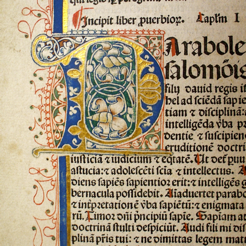 Incipit liber ꝓuerbioꝝ. Capłm I
Parabole
salomōis
filij dauid regis iſr
bel ad sciēdā sapiē
tiam ⁊ disciplinā:
intelligēda v̄ba pru
dentie ⁊ suscipien
eruditionē doctri
iusticiā ⁊ iudiciū ⁊ eq̄tatē. Ut det̄ paru
astucia: ⁊ adolescēti sciā ⁊ intellectus. A
diens sapiēs sapientior erit: ⁊ intelligēs
bernacula possidebit. Aiaduertet parabolā
⁊ inṫpretationē v̄ba sapientiū ⁊ enigmata
rū. Timor dn̄i pͥncipiū sapiē. Sapiam at
doctrinā stulti despiciūt. Audi fili mi di
plinā pr̄is tui: ⁊ ne dimittas legem m